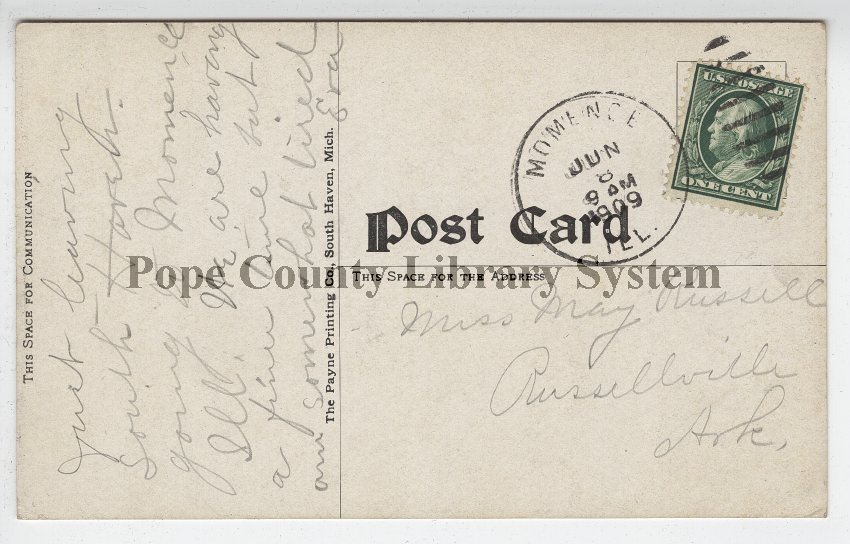 THIS SPACE FOR COMMUNICATION
Just leaving
South Haven
going to Momence
Ill. We are having
a fine time but
am somewhat tired
Eva
The Payne Printing Co., South Haven, Mich.
Post Card
THIS SPACE FOR THE ADDRESS
MOMENCE
JUN
8
9 AM
1909
ILL.
U.S. POSTAGE
ONE CENT
Miss May Russell
Russellville
Ark.
Pope County Library System